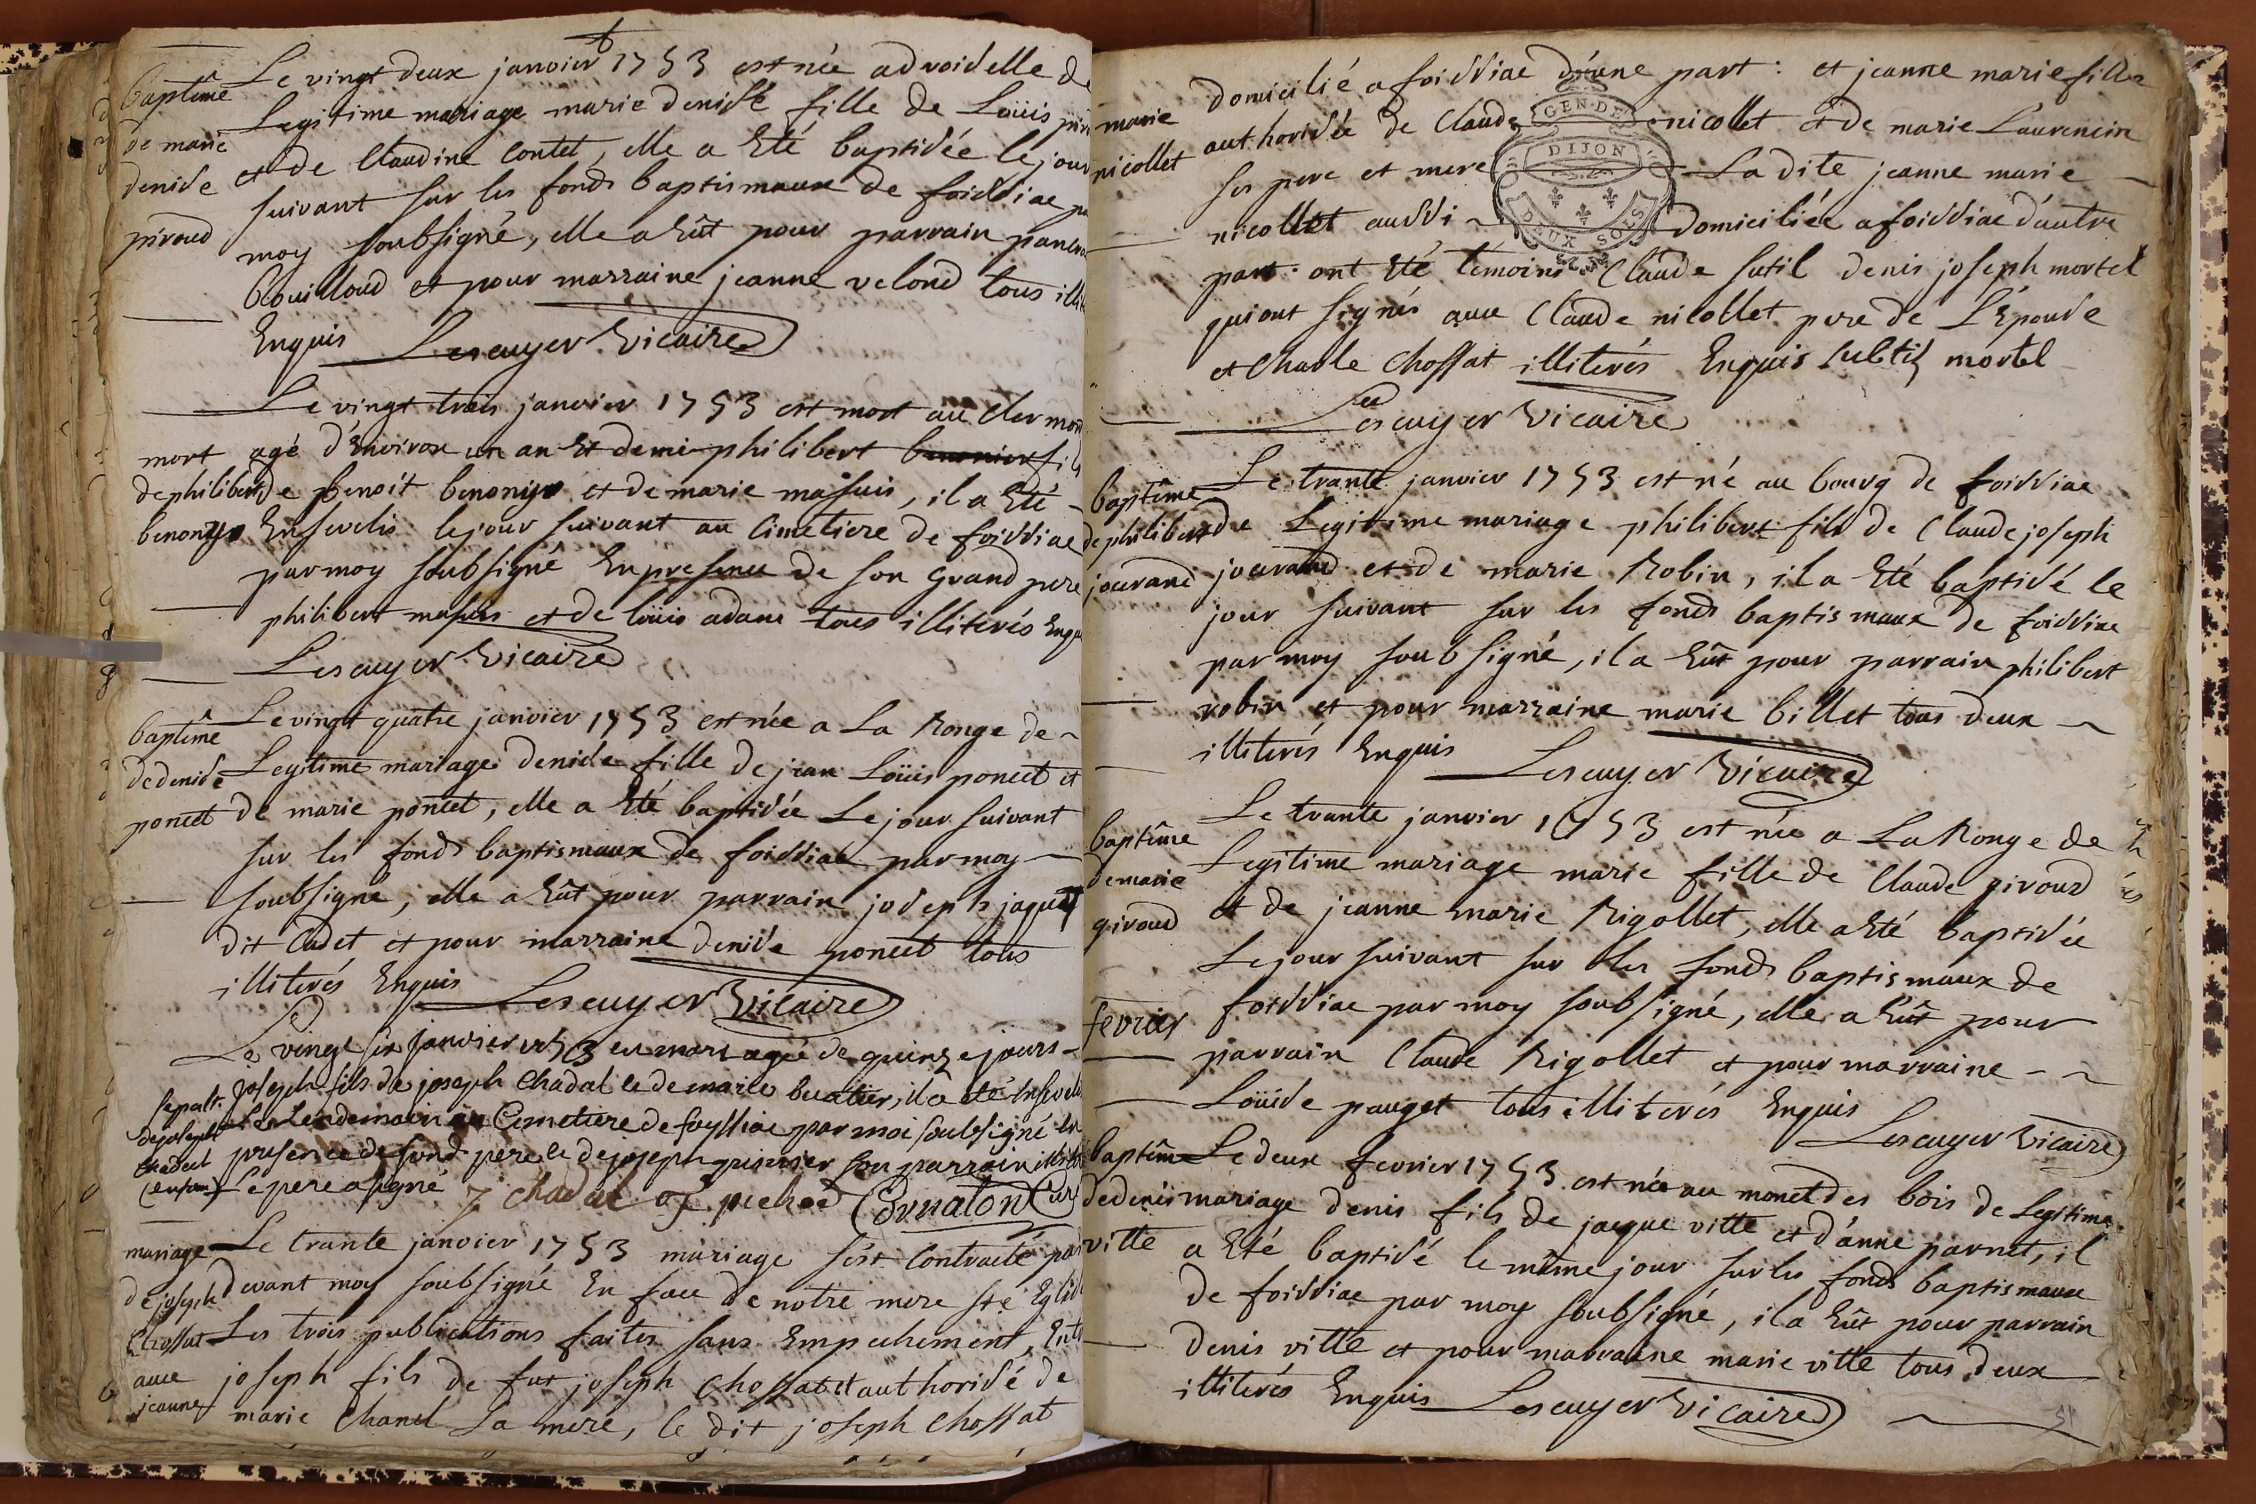 baptême
de marie
denise
piroud
Le vingt deux janvier 1753 est née advoiselle de
Legitime mariage marie denise fille de Loüis piroud
et de Claudine Contet, elle a Eté baptisée le jour
suivant sur les fonds baptismaux de foissiac par
moy soubsigné, elle a Eût pour parrain
bouilloud et pour marraine jeanne velond tous
Enquis Lescuyer Vicaire
mort
de philibert
benonyr
Le vingt trois janvier 1753 est mort au Clermont
agé d'Environ un an Et demi philibert fils
de benoit benonyr et de marie masuis, il a Eté
Ensevelis le jour suivant au Cimetiere de foissiac
par moy soubsigné En presence de son grand pere
philibert masuis et de loüis adam tous illiterés Enquis
Lescuyer Vicaire
baptême
de denise
poncet
Le vingt quatre janvier 1753 est née a La Ronge de
Legitime mariage denise fille de jean Loüis poncet et
de marie poncet, elle a Eté baptisée Le jour suivant
sur les fonds baptismaux de foissiac par moy
soubsigné, elle a Eût pour parrain joseph jaquet
dit Cadet, et pour marraine denise poncet tous
illiterés Enquis Lescuyer Vicaire
sepult.
de joseph
chadal
(enfant)
Le vingt six janvier 1753 est mort agé de quinze jours
joseph fils de joseph Chadal et de marie buatier, il a été Enseveli
le Lendemain au Cimetiere de foyssiac par moi soubsigné En
presence de sond pere et de joseph son parrain
le pere a signé j chadal Cornaton Curé
mariage
de joseph
Chossat
avec
jeanne
Le trante janvier 1753 mariage s'est Contracté par
devant moy soubsigné En face de notre mere ste Eglise
Les trois publications faites sans Empechement, Entre
joseph fils de fut joseph Chossat et authorisé de
marie Chanel sa mere, le dit joseph Chossat
marie
nicollet
domicilié a foissiac d'une part: et jeanne marie fille
authorisée de Claude nicollet et de marie Laurencin
ses pere et mere La dite jeanne marie
nicollet aussi domiciliée a foissiac d'autre
part. ont Eté témoins Claude sutil denis joseph mortel
qui ont signés avec Claude nicollet pere de L'Epouse
et Charle Chossat illiterés Enquis subtil mortel
Lescuyer Vicaire
GEN. DE
DIJON
DEUX SOLS
baptême
de philibert
jouvand
Le trante janvier 1753 est né au bourg de foissiac
de Legitime mariage philibert fils de Claude joseph
jouvand et de marie Robin, il a Eté baptisé le
jour suivant sur les fonds baptismaux de foissiac
par moy soubsigné, il a Eût pour parrain philibert
robin et pour marraine marie billet tous deux
illiterés Enquis Lescuyer Vicaire
baptême
de marie
giroud
Le trante janvier 1753 est née a La Ronge de
Legitime mariage marie fille de Claude giroud
et de jeanne marie Rigollet, elle a Eté baptisée
Le jour suivant sur les fonds baptismaux de
foissiac par moy soubsigné, elle a Eût pour
parrain Claude Rigollet et pour marraine
Loüise pauget tous illiterés Enquis
Lescuyer Vicaire
fevrier
baptême
de denis
vitte
Le deux fevrier 1753 est née au monet des bois de Legitime
mariage denis fils de jacque vitte et d'anne parnet, il
a Eté baptisé le même jour sur les fonds baptismaux
de foissiac par moy soubsigné, il a Eût pour parrain
denis vitte et pour marraine marie vitte tous deux
illiterés Enquis Lescuyer Vicaire